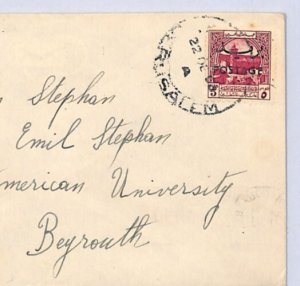 JERUSALEM
22 DE
A
Stephan
Emil Stephan
American University
Beyrouth